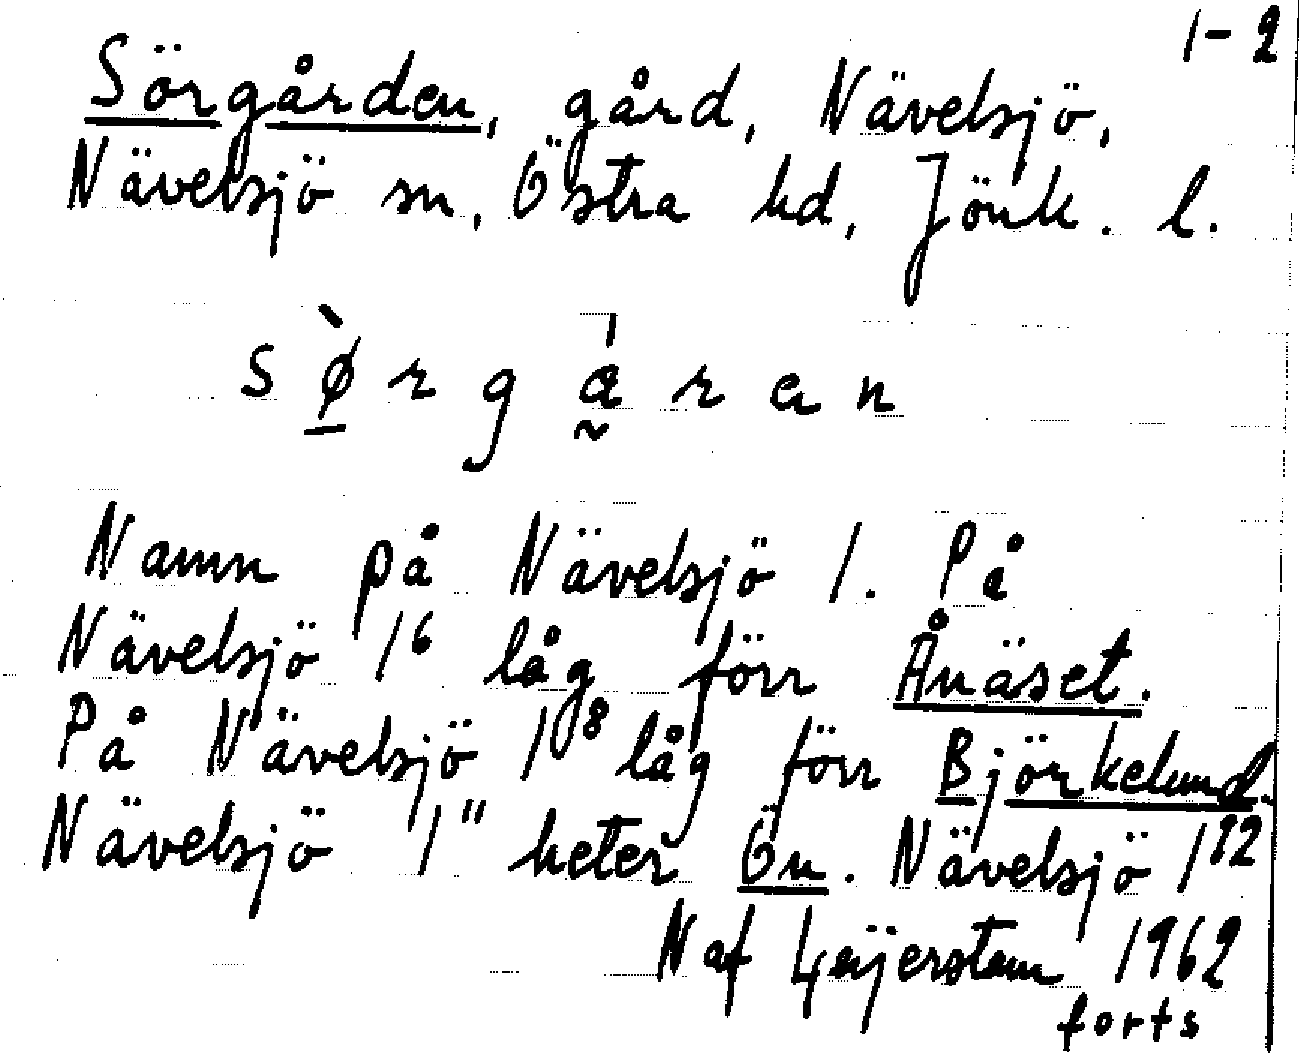 1-2
Sörgården, gård, Nävelsjö,
Nävelsjö sn, Östra hd, Jönk. l.
sø̀rgáran
Namn på Nävelsjö 1. På
Nävelsjö 1⁶ låg förr Ånäset.
På Nävelsjö 1⁸ låg förr Björkelund.
Nävelsjö 1¹¹ heter Ön. Nävelsjö 1¹²
N af Geijerstam 1962
forts